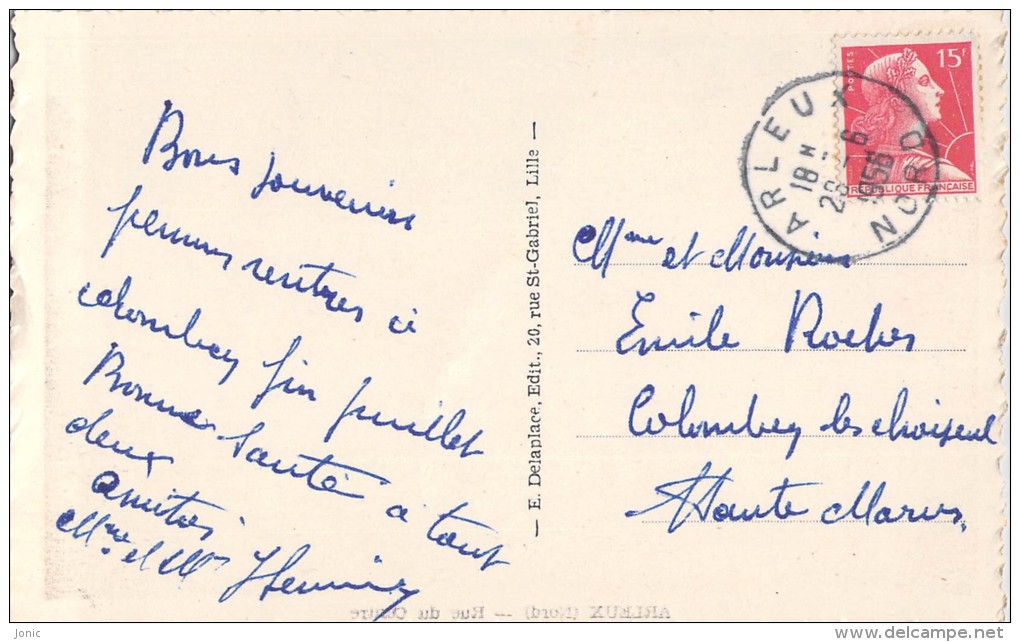 Bons souvenirs
pensons rentres à
colombey fin juillet
Bonne Santé a tout
deux
amitiés
Mme et Mr
— E. Delaplace, Edit., 20, rue St-Gabriel, Lille —
15F
POSTES
REPUBLIQUE FRANÇAISE
ARLEUX
18 H
28 - 6
1956
NORD
Mme et Monsieur
Emile Rocher
Colombey les choiseul
Haute Marne
ARLEUX (Nord) — Rue du Quesne
Jonic
www.delcampe.net